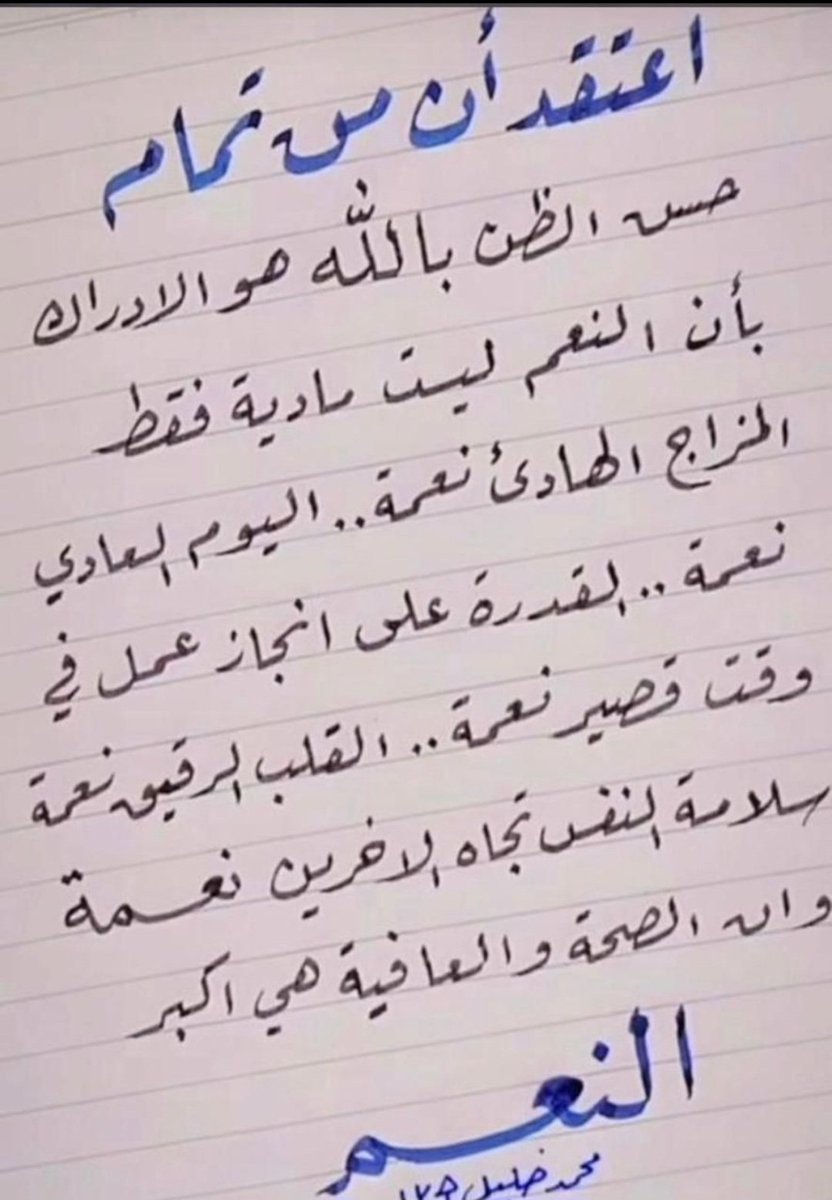 اعتقد أن من تمام
حسن الظن بالله هو الادراك
بأن النعم ليست مادية فقط
المزاج الهادئ نعمة.. اليوم العادي
نعمة.. القدرة على انجاز عمل في
وقت قصير نعمة.. القلب الرقيق نعمة
سلامة النفس تجاه الاخرين نعمة
وان الصحة والعافية هي اكبر
النعم
محمد خليل